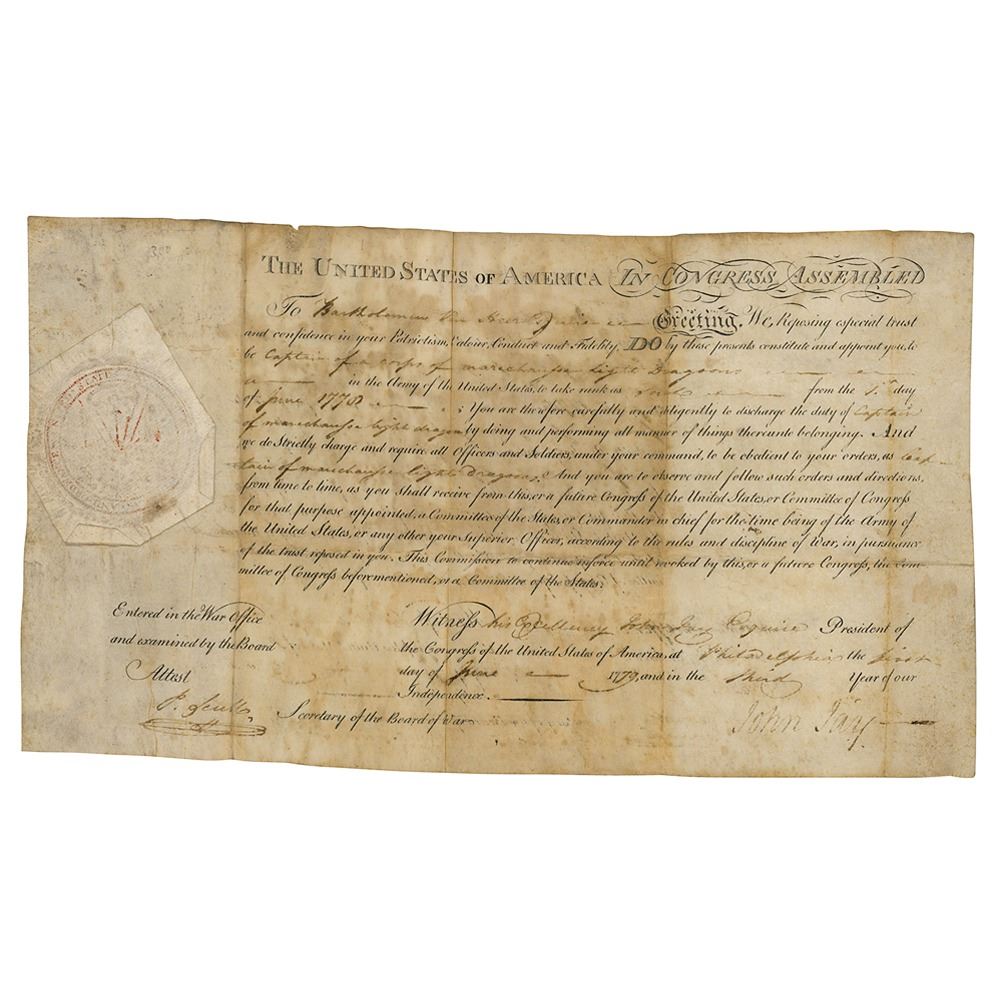 THE UNITED STATES OF AMERICA IN CONGRESS ASSEMBLED
To Bartholomew Von Heer Esquire Greeting. We, Reposing especial trust
and confidence in your Patriotism, Valour, Conduct and Fidelity, DO by these presents constitute and appoint you, to
be Captain of a corps of marechausse light Dragoons
in the Army of the United States, to take rank as such from the 1st day
of June 1778 ; You are therefore carefully and diligently to discharge the duty of Captain
of marechausse light dragoons by doing and performing all manner of things thereunto belonging. And
we do Strictly charge and require all Officers and Soldiers, under your command, to be obedient to your orders, as Cap-
tain of marechausse light Dragoons. And you are to observe and follow such orders and directions,
from time to time, as you Shall receive from this, or a future Congress of the United States, or Committee of Congress
for that purpose appointed, a Committee of the States, or Commander in chief for the time being of the Army of
the United States, or any other your Superior Officer, according to the rules and discipline of War, in pursuance
of the trust reposed in you. This Commission to continue in force until revoked by this, or a future Congress, the Com-
mittee of Congress beforementioned, or a Committee of the States.
Entered in the War Office
and examined by the Board
Attest
P. Scull
Secretary of the Board of War
Witness his Excellency John Jay Esquire President of
the Congress of the United States of America, at Philadelphia the first
day of June 1779, and in the third Year of our
Independence.
John Jay